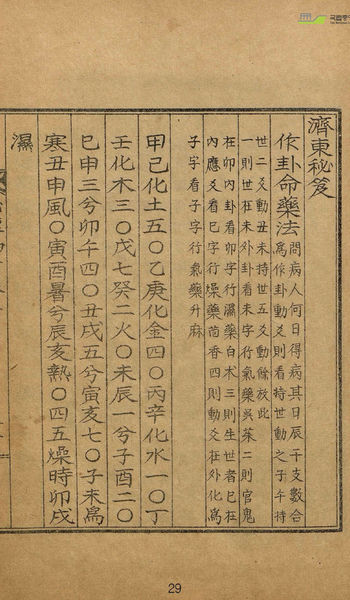 濟東秘笈
作卦命藥法
問病人何日得病其日辰干支數合
爲作卦動爻則看持世動之子午持
世二爻動丑未持世五爻動餘放此
一則世在未外卦看未字行氣藥吳茱二則官鬼
在卯內卦看卯字行濕藥白朮三則生世者巳在
內應爻看巳字行燥藥茴香四則動爻在外化爲
子字看子字行氣藥升麻
甲己化土五〇乙庚化金四〇丙辛化水一〇丁
壬化木三〇戊七癸二火〇未辰一兮子酉二〇
巳申三兮卯午四〇丑戌五兮寅亥七〇子未爲
寒丑申風〇寅酉暑兮辰亥熱〇四五燥時卯戌
濕
29